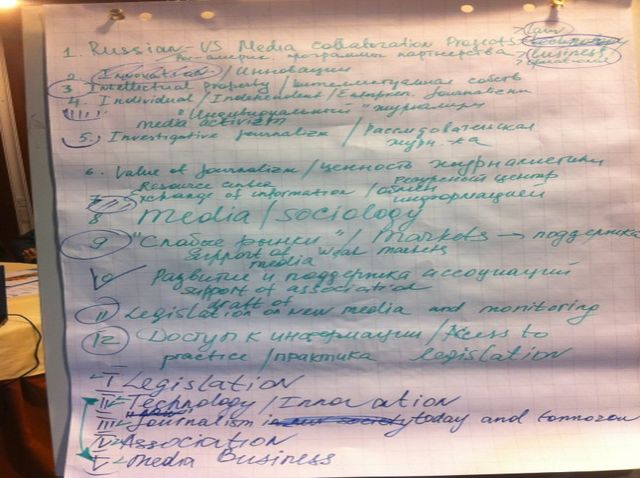 1. Russian-US Media Collaboration Projects
Рос-америк. программы партнерства
law
technology
business
2. Innovation / Инновации
3 Intellectual property / Интеллектуальная собств
4. Individual / Independent / Enterpren. Journalizm
"Индивидуальный" журнализм
media activism
5. Investigative journalizm / Расследовательская
журн-ка
6. Value of Journalizm / ценность журналистики
Resource center / Ресурсный центр
7 exchange of information / обмен информацией
8 media / sociology
9 "Слабые рынки" / Markets → поддержка
Support of weak markets
media
10 Развитие и поддержка ассоциаций
support of association
draft of
11 Legislation on new media and monitoring
12 Доступ к информации / Access to
practice / практика legislation
I Legislation
II Technology / Innovation
III Journalism in our society today and tomorrow
IV Association
V media Business